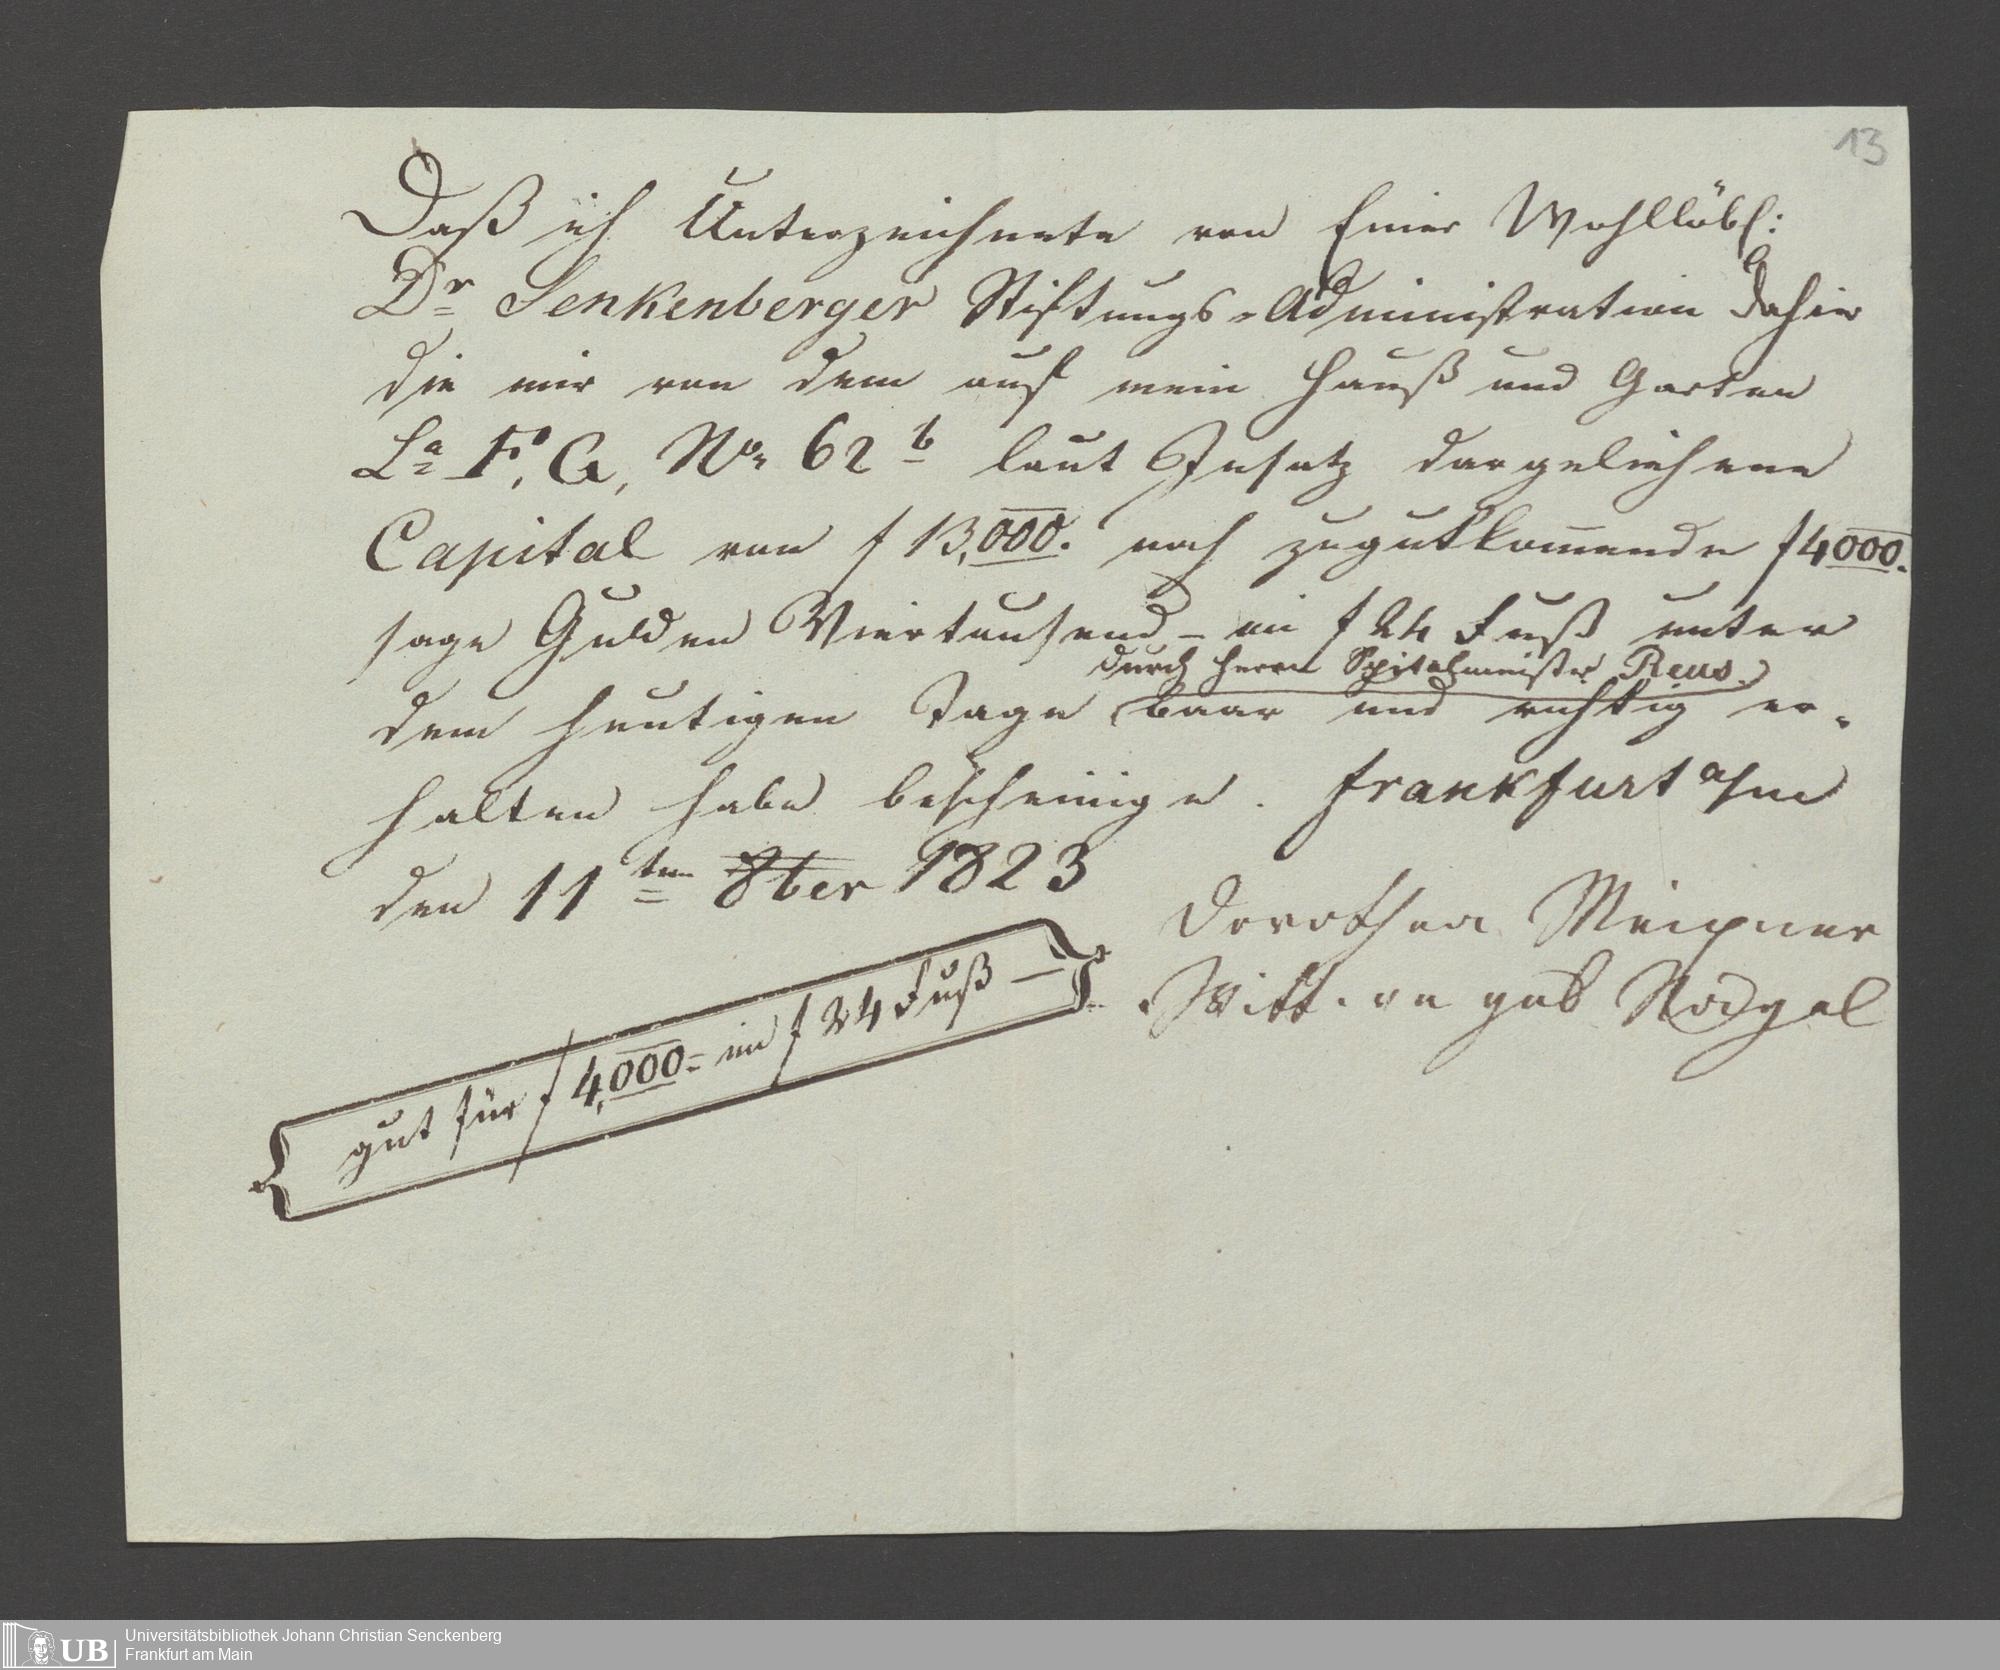 13
Daß ich Unterzeichnete von Einer Wohllöbl:
Dr Senkenberger Stiftungs-Administration dahier
die mir von dem auf mein Hauß und Garten
La F, G, No 62 b laut Insatz dargeliehene
Capital von f 13,000. noch zugutkom̅ende f 4000.
sage Gulden Viertausend – im f 24 Fuß unter
durch Herrn Spitalmeister Reus.
dem heutigen Tage baar und richtig er-
halten habe bescheinige. Frankfurt a/m
den 11ten 8ber 1823
Dorothea Meixner
Witt.
gut für f 4,000.– im f 24 Fuß –
UB
Universitätsbibliothek Johann Christian Senckenberg
Frankfurt am Main